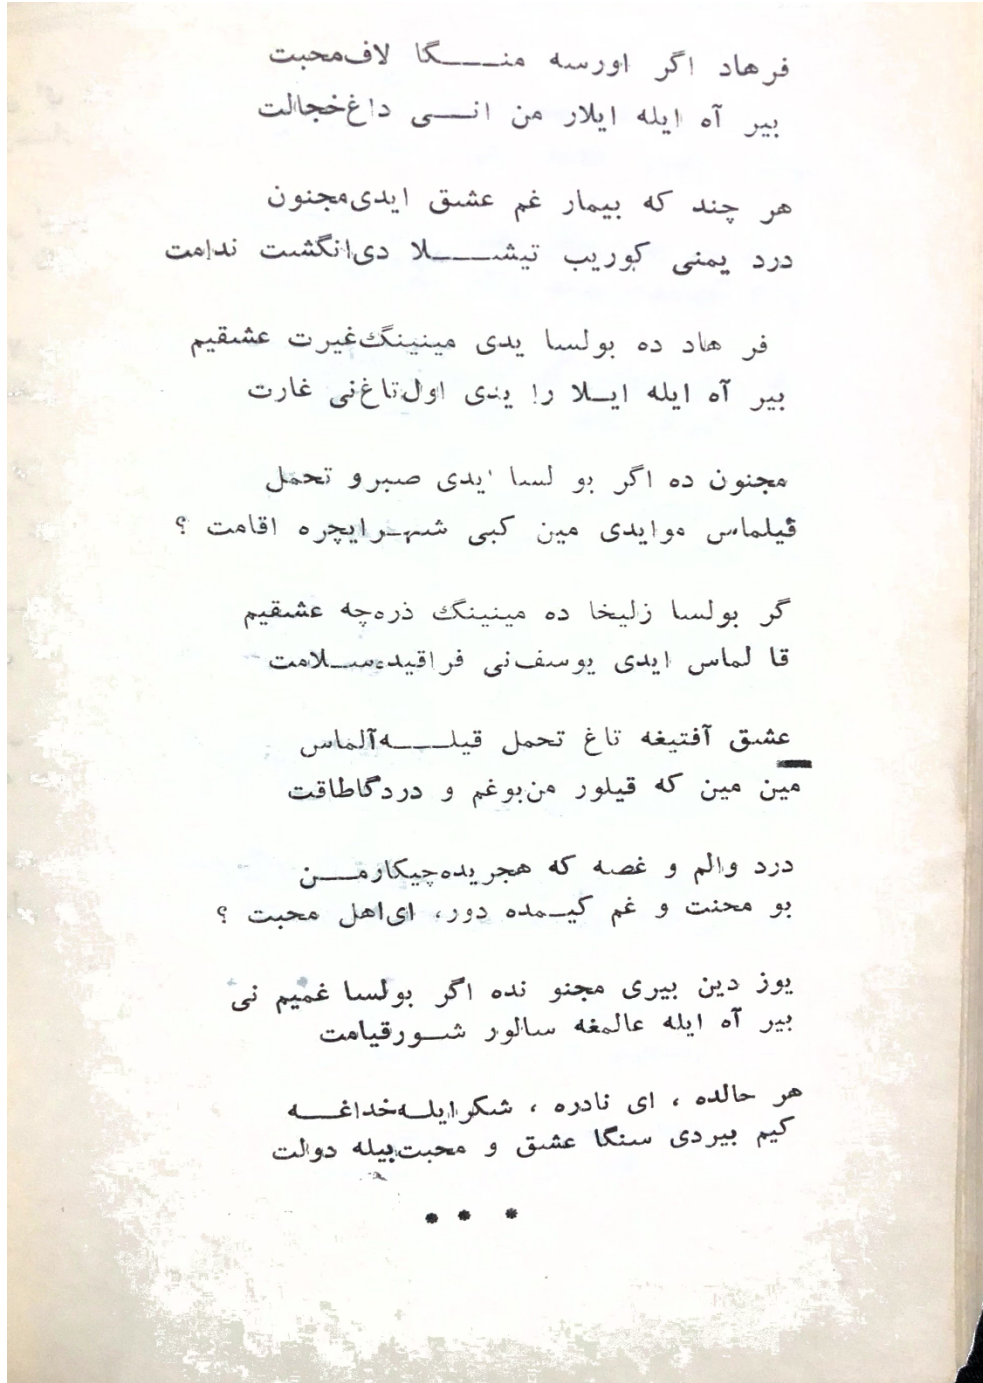 فرهاد اگر اورسه منـــگا لاف‌محبت
بیر آه ایله ایلار من انــی داغ‌خجالت
هر چند که بیمار غم عشق ایدی‌مجنون
درد یمنی کوریب تیشـــلا دی‌انگشت ندامت
فر هاد ده بولسا یدی مینینگ‌غیرت عشقیم
بیر آه ایله ایـلا را یدی اول‌تاغ‌نی غارت
مجنون ده اگر بو لسا ایدی صبرو تحمل
قیلماس موایدی مین کبی شهـرایچره اقامت ؟
گر بولسا زلیخا ده مینینگ ذره‌چه عشقیم
قا لماس ایدی یوسف‌نی فراقیده‌سـلامت
عشق آفتیغه تاغ تحمل قیلـــه‌آلماس
مین مین که قیلور من‌بوغم و دردگاطاقت
درد والم و غصه که هجریده‌چیکارمــن
بو محنت و غم کیـمده دور، ای‌اهل محبت ؟
یوز دین بیری مجنو نده اگر بولسا غمیم نی
بیر آه ایله عالمغه سالور شـورقیامت
هر حالده ، ای نادره ، شکرایلـه‌خداغــه
کیم بیردی سنگا عشق و محبت‌بیله دولت
* * *